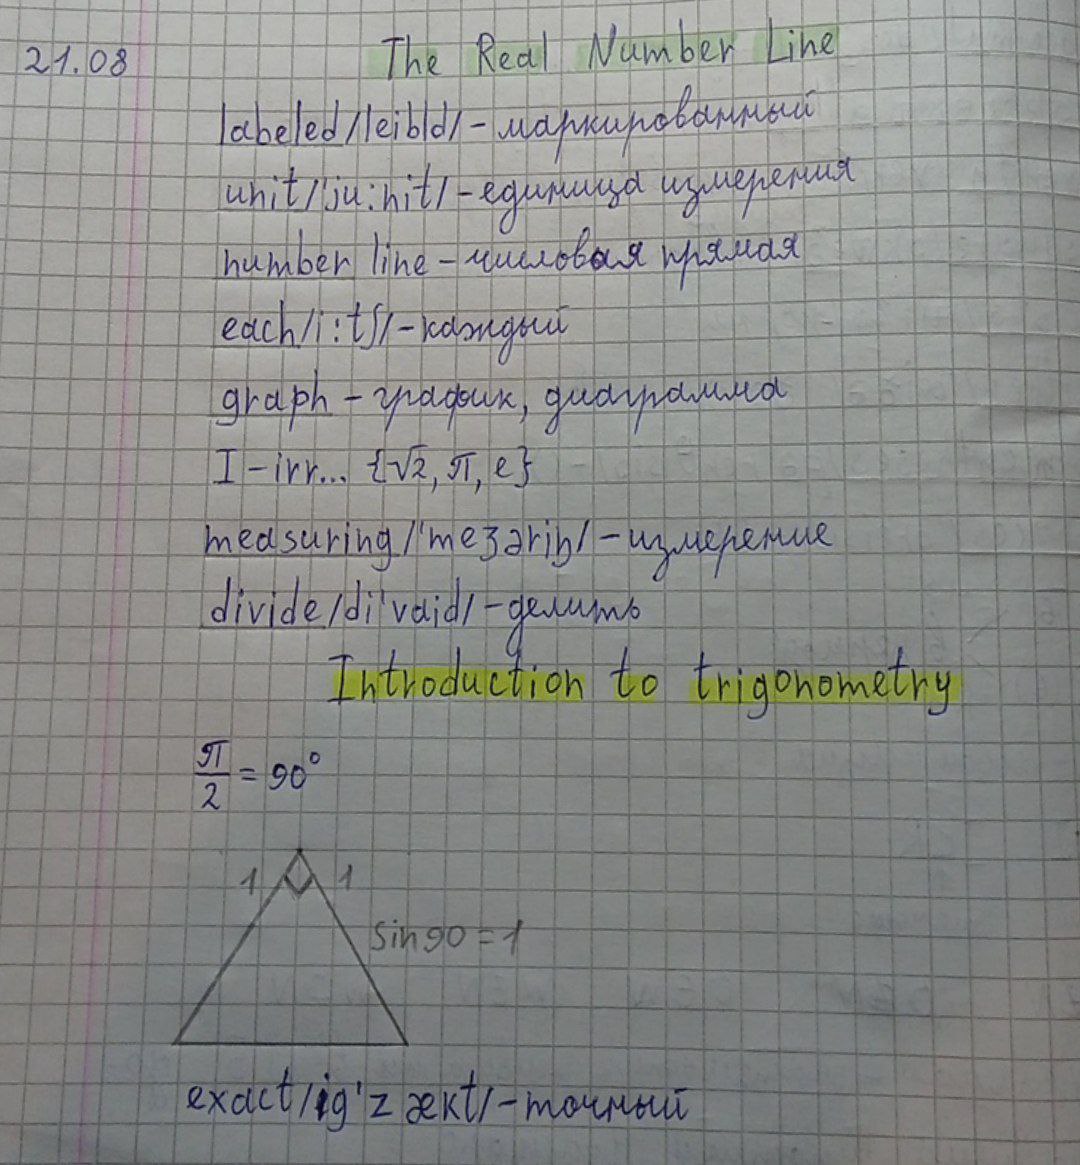 21.08 The Real Number Line
labeled/leibld/-маркированный
unit/'ju:nit/-единица измерения
number line-числовая прямая
each/i:tʃ/-каждый
graph - график, диаграмма
I-irr... {√2, π, e}
measuring/'meʒəriŋ/-измерение
divide/di'vaid/-делить
Introduction to trigonometry
π/2 = 90°
1 1
sin90=1
exact/ig'zækt/-точный